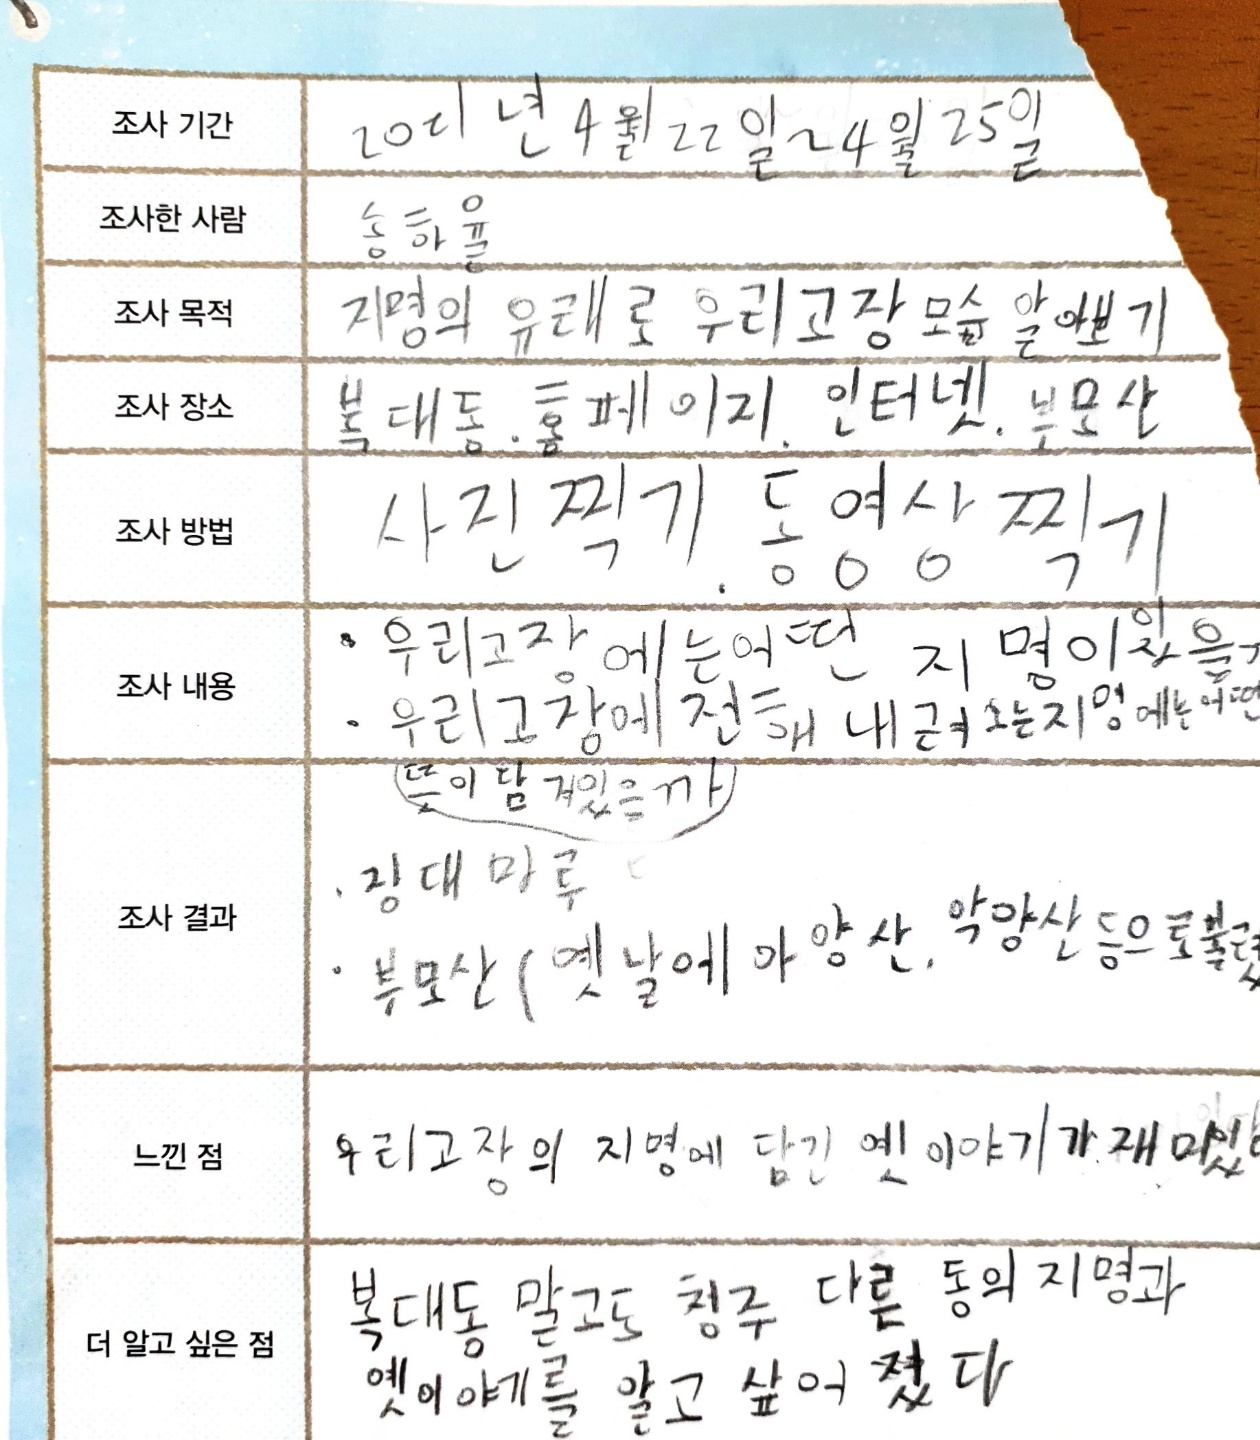 조사 기간 2021년 4월 22일~4월 25일
조사한 사람 송하율
조사 목적 지명의 유래로 우리고장 모습 알아보기
조사 장소 복대동.홈페이지.인터넷.부모산
조사 방법 사진찍기.동영상찍기
조사 내용 • 우리고장에는어떤 지명이있을
• 우리고장에 전해 내려오는지명에는어떤
뜻이 담겨있을까
조사 결과 · 장대마루
· 부모산(옛날에 아양산.악양산등으로불렸
느낀 점 우리고장의 지명에 담긴 옛이야기가재미있
더 알고 싶은 점 복대동 말고도 청주 다른 동의 지명과
옛이야기를 알고 싶어졌다